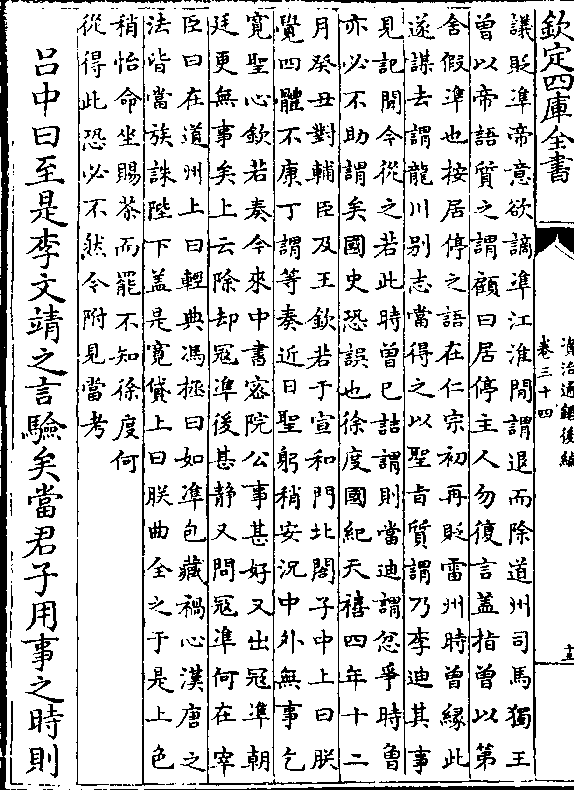 欽定四庫全書
資治通鑑後編
卷三十四
議貶準帝意欲謫準江淮間謂退而除道州司馬獨王
曾以帝語質之謂顧曰居停主人勿復言盖指曾以第
舍假準也按居停之語在仁宗初再貶雷州時曾緣此
遂謀去謂龍川别志當得之以聖㫖質謂乃李迪其事
見記聞今從之若此時曾已詰謂則當迪謂忿爭時曾
亦必不助謂矣國史恐誤也徐度國紀天禧四年十二
月癸丑對輔臣及王欽若于宣和門北閣子中上曰朕
覺四體不康丁謂等奏近日聖躬稍安況中外無事乞
寛聖心欽若奏今來中書宻院公事甚好又出冦準朝
廷更無事矣上云除却冦準後甚静又問冦準何在宰
臣曰在道州上曰輕典馮拯曰如準包藏禍心漢唐之
法皆當族誅陛下盖是寛貸上曰朕曲全之于是上色
稍怡命坐賜茶而罷不知徐度何
從得此恐必不然今附見當考
吕中曰至是李文靖之言驗矣當君子用事之時則